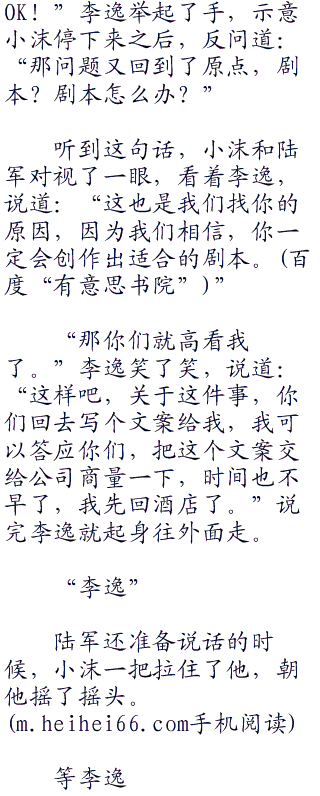 OK！”李逸举起了手，示意
小沫停下来之后，反问道：
“那问题又回到了原点，剧
本？剧本怎么办？”
听到这句话，小沫和陆
军对视了一眼，看着李逸，
说道：“这也是我们找你的
原因，因为我们相信，你一
定会创作出适合的剧本。(百
度“有意思书院”)”
“那你们就高看我
了。”李逸笑了笑，说道：
“这样吧，关于这件事，你
们回去写个文案给我，我可
以答应你们，把这个文案交
给公司商量一下，时间也不
早了，我先回酒店了。”说
完李逸就起身往外面走。
“李逸”
陆军还准备说话的时
候，小沫一把拉住了他，朝
他摇了摇头。
(m.heihei66.com手机阅读)
等李逸